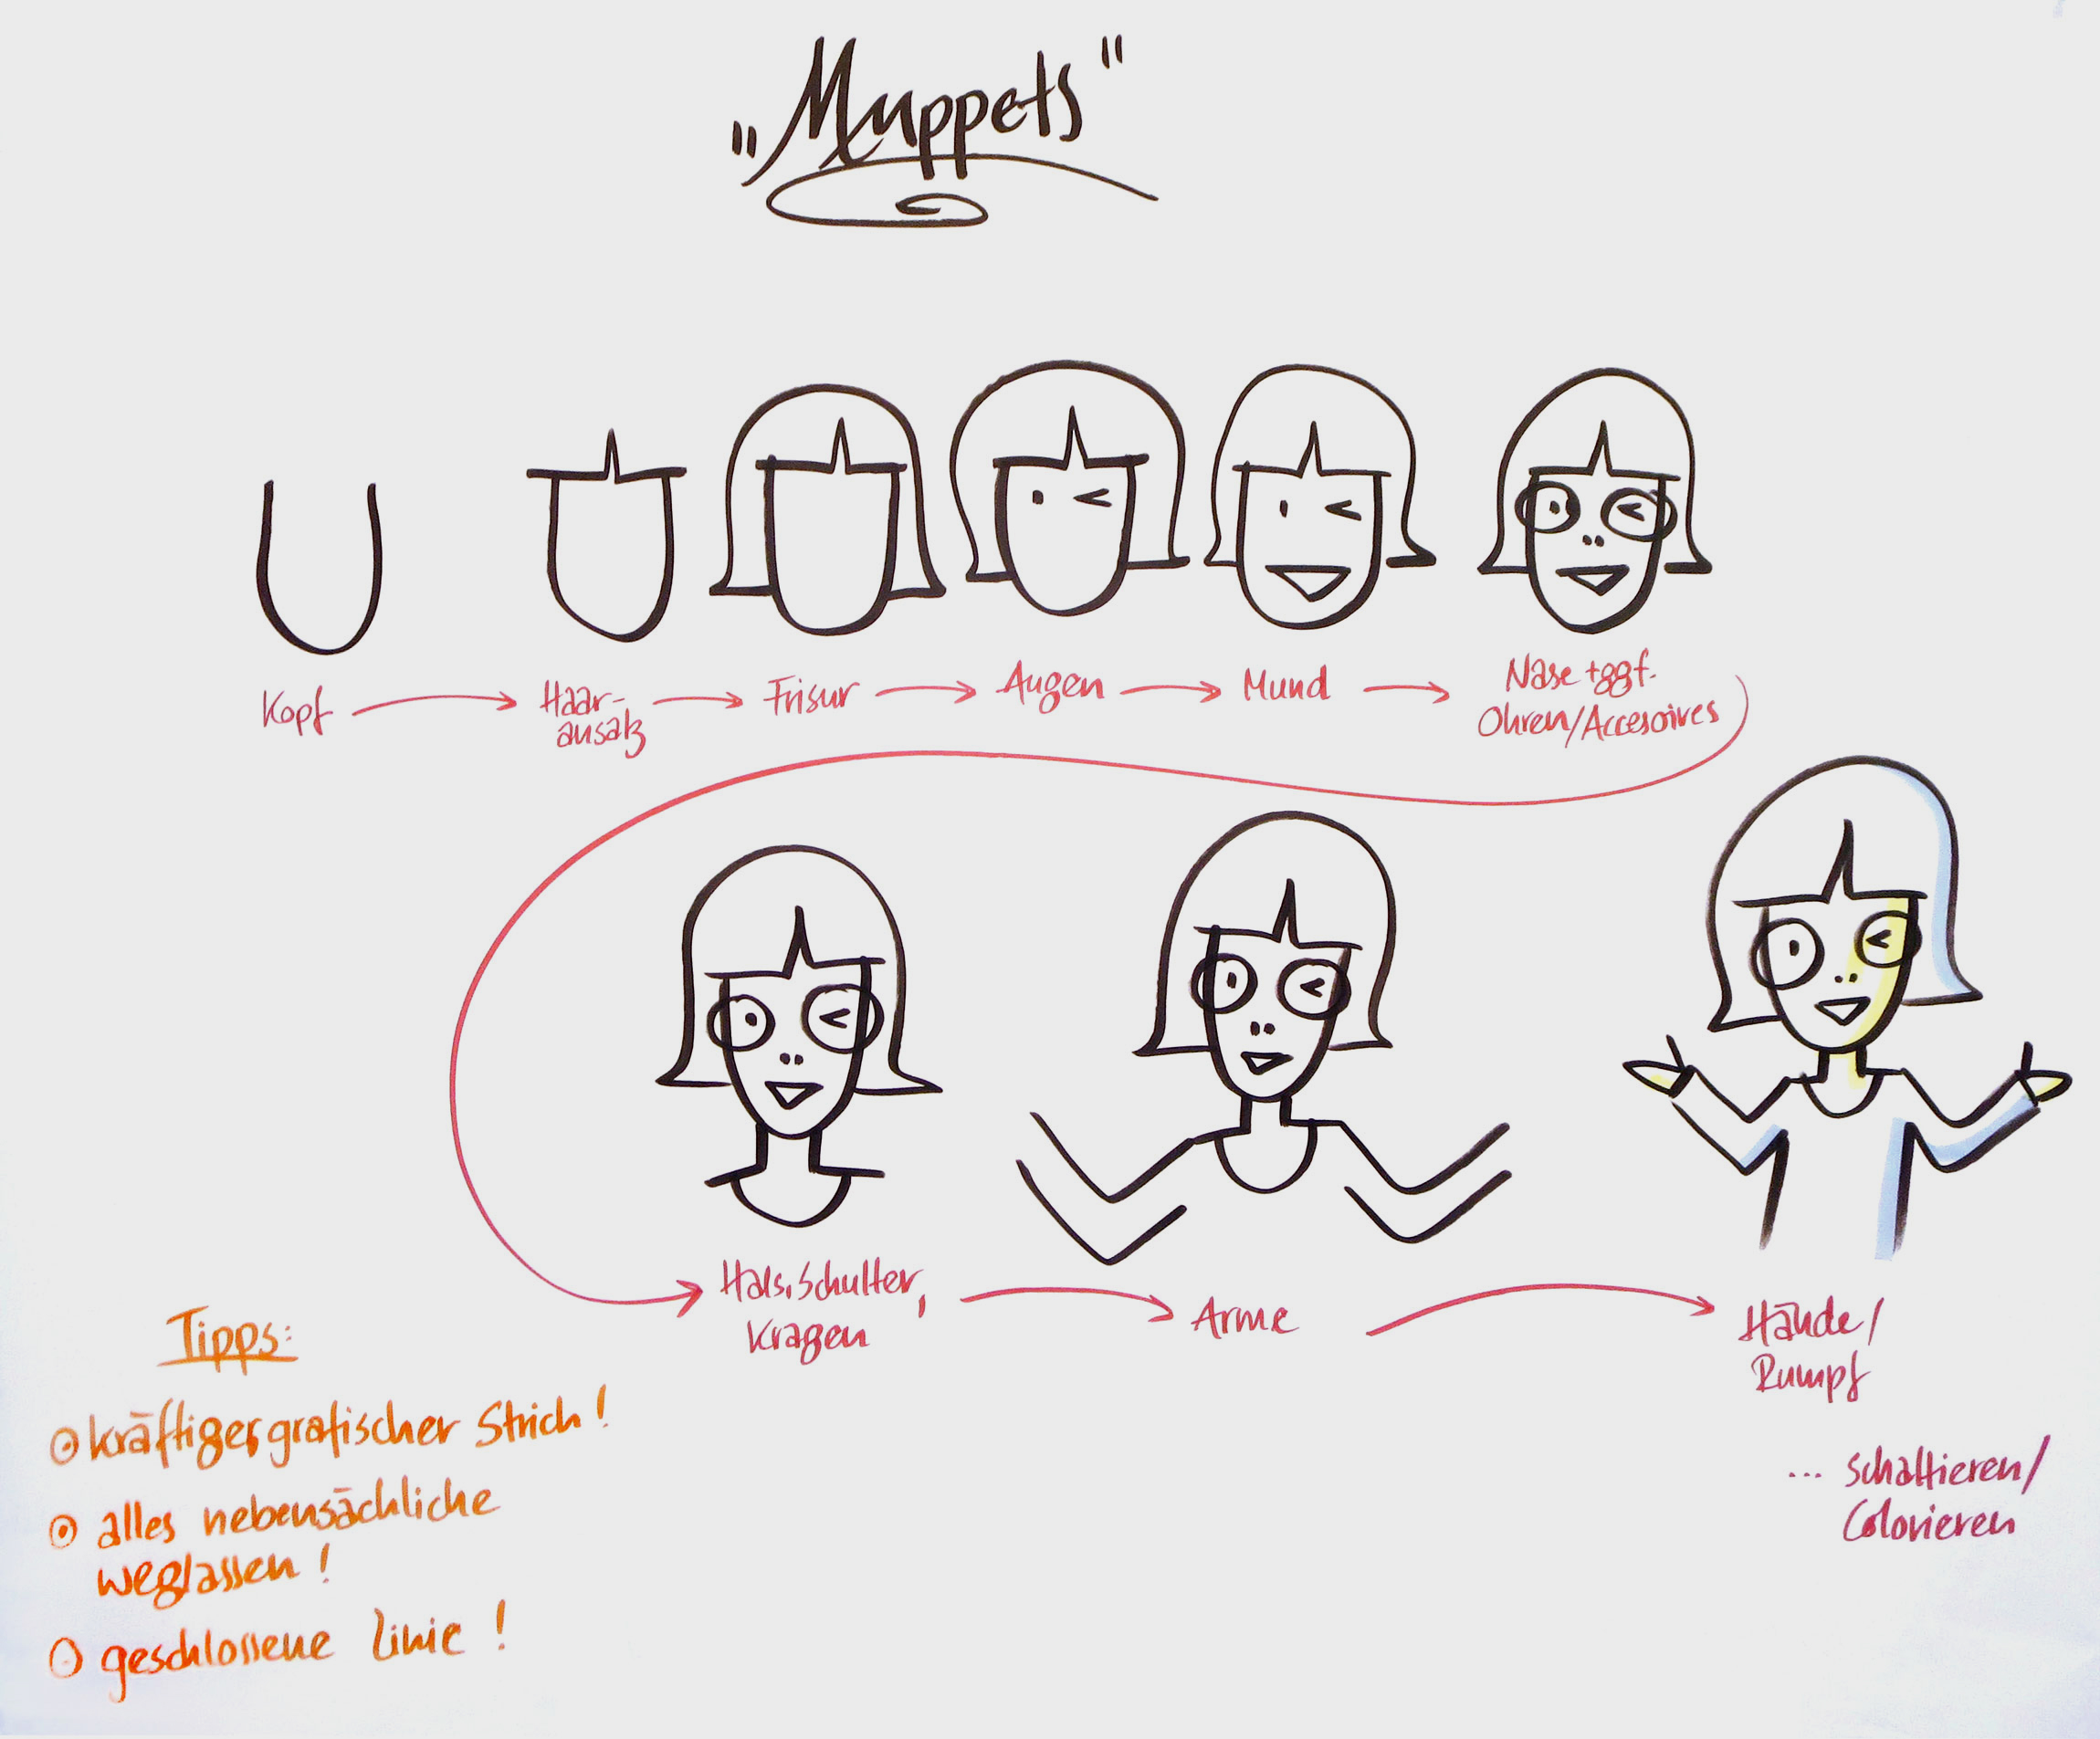 „Muppets"
Kopf
Haar-
ansatz
Frisur
Augen
Mund
Nase + ggf.
Ohren/Accesoires
Hals, Schulter,
Kragen
Arme
Hände/
Rumpf
... schattieren/
Colorieren
Tipps:
kräftiger, grafischer Strich!
alles nebensächliche
weglassen!
geschlossene Linie!